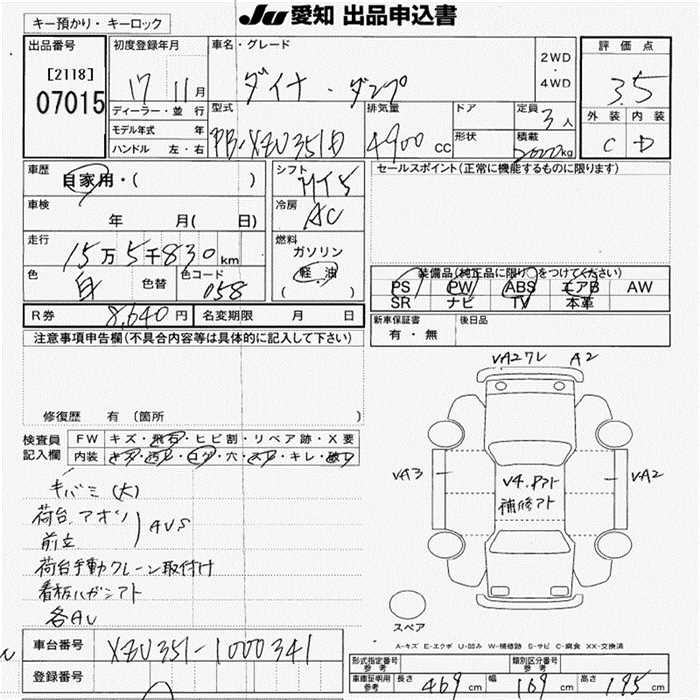 キー預かり・キーロック
JU 愛知 出品申込書
出品番号
[2118]
07015
初度登録年月
17 11月
車名・グレード
ダイナ・ダンプ
2WD
・
4WD
評価点
3.5
外装 内装
C D
ディーラー・並行
モデル年式 年
ハンドル 左・右
型式
PB-XZU351D
排気量
4900 cc
ドア
形状
定員
3人
積載
2000kg
車歴
自家用・( )
車検
年 月( 日)
走行
15万5千830km
色
白
色替
色コード
058
シフト
MT5
冷房
AC
燃料
ガソリン
軽油
( )
セールスポイント(正常に機能するものに限ります)
装備品(純正品に限り○をつけてください)
PS PW ABS エアB AW
SR ナビ TV 本革
新車保証書
有・無
後日品
R券 8,640円
名変期限 月 日
注意事項申告欄(不具合内容等は具体的に記入して下さい)
修復歴 有 (箇所 )
検査員
記入欄
FW キズ・飛石・ヒビ割・リペア跡・X要
内装 キズ・汚れ・コゲ・穴・スレ・キレ・破れ
キバミ(大)
荷台.アオリ
前立
AUS
荷台手動クレーン取付け
看板ハガシアト
各AU
VA27レ A2
VA3
VA2
V4.Pアト
補修アト
スペア
A-キズ E-エクボ U-凹み W-補修跡 S-サビ C-腐食 XX-交換済
車台番号 XZU351-1000341
登録番号
型式指定番号
参考
類別区分番号
参考
車庫証明用
参考
長さ 469cm 幅 169cm 高さ 195cm